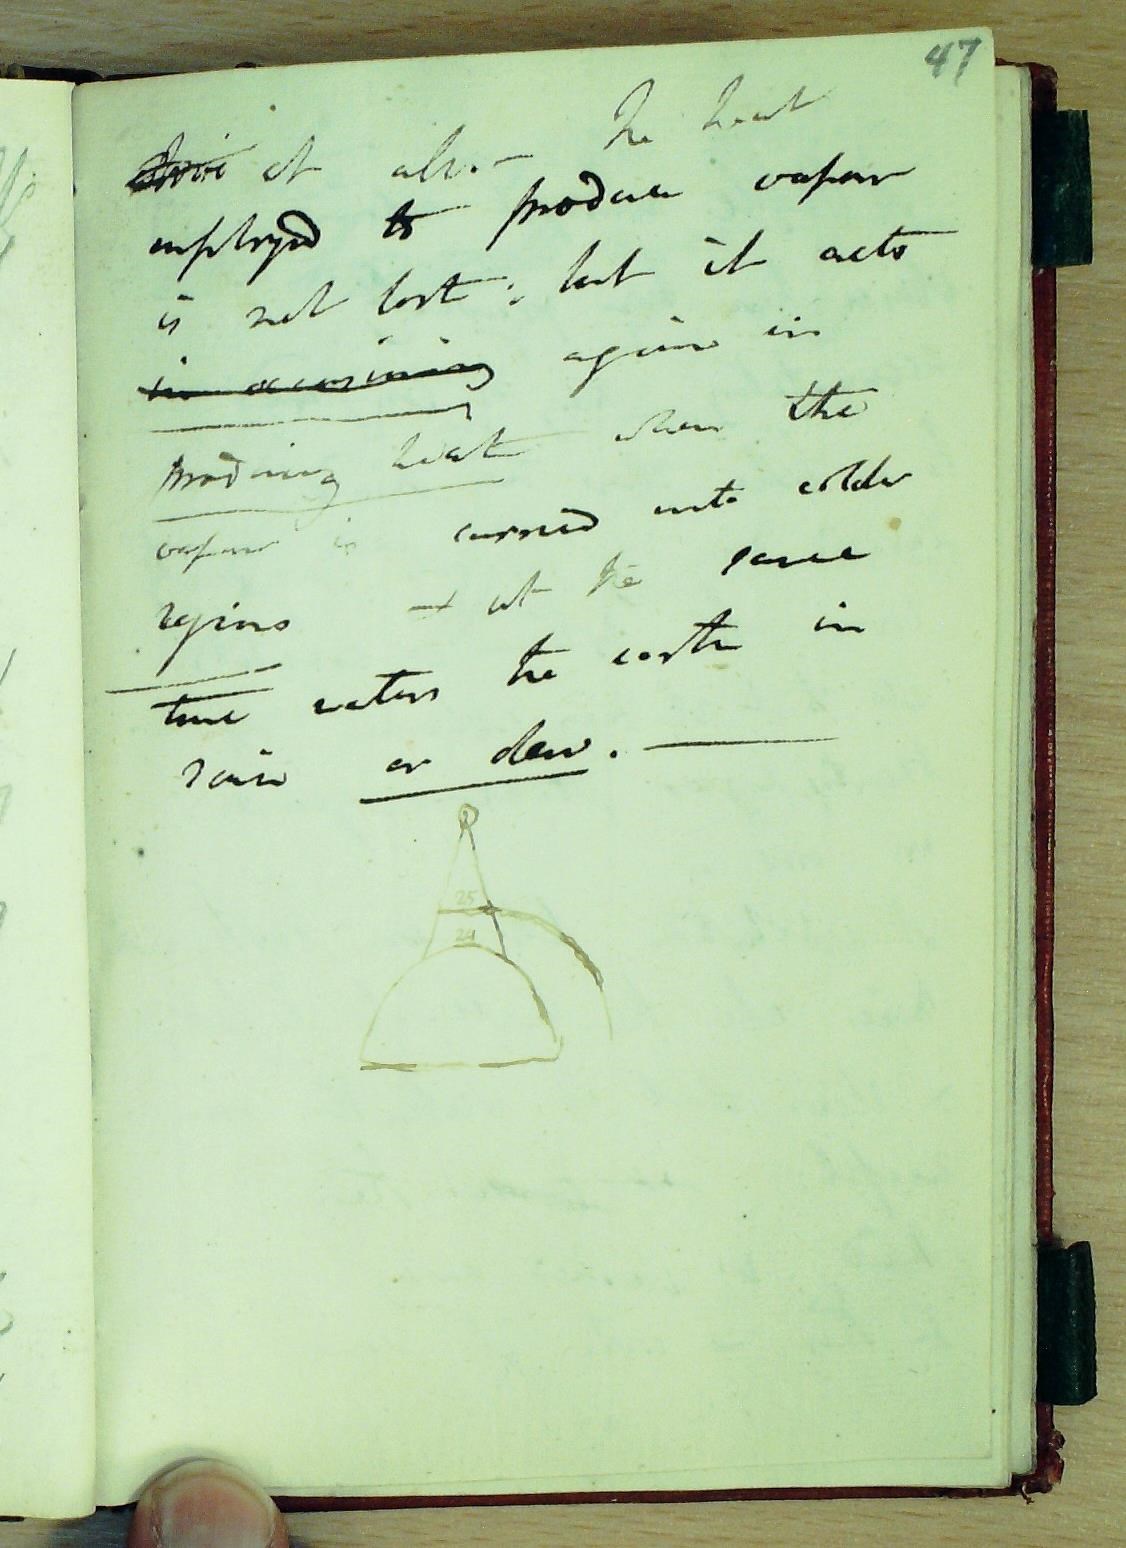 47
it also — the heat
employed to produce vapour
is not lost; but it acts
in occasioning again in
producing heat when the
vapour is carried into colder
regions & at the same
time waters the earth in
rain or dew. —
25
24